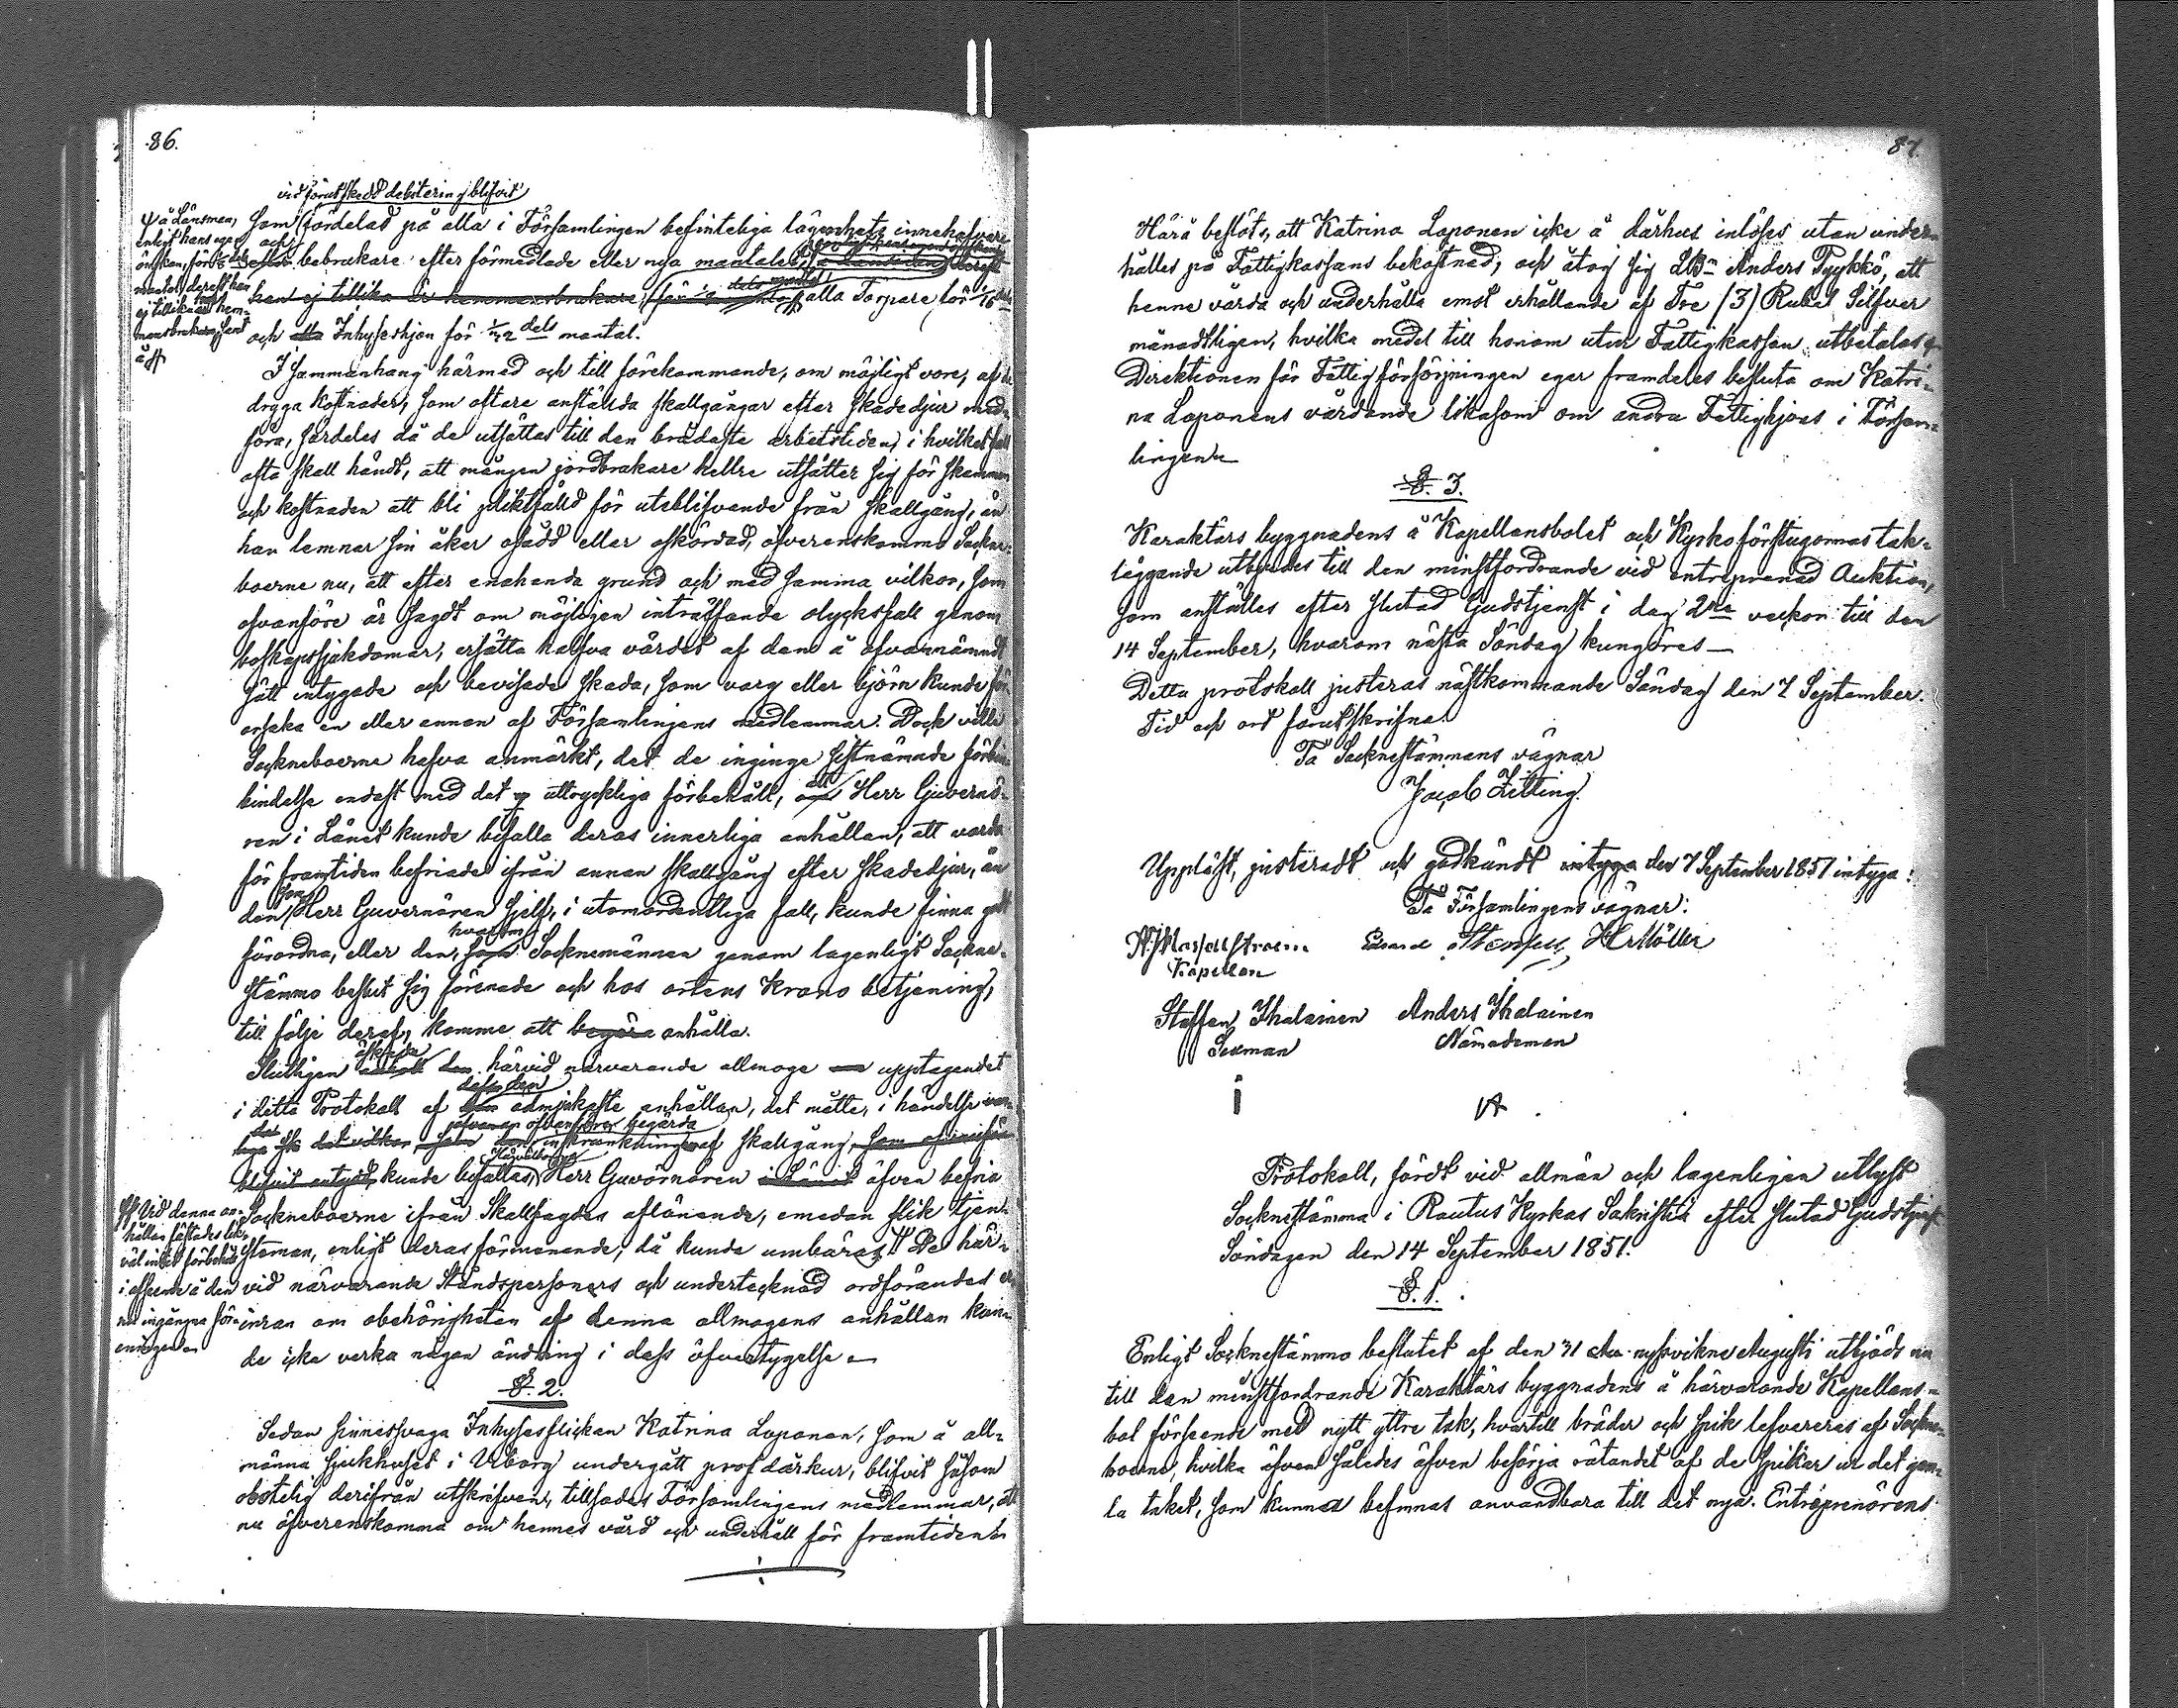 86.
vid förut skedd debitering blifvit
som fördelad på alla i Församlingen befinteliga lägenhets innehafvare
och efter bebrukare efter förmedlade eller nya mantalet,
han ej tillika är hemmansbrukare, för dels mantal alla Torpare för 1/16 dels
och alla Inhyseshjon för 1/32 dels mantal.
å Länsman,
enligt hans egen
önskan, för 1/8 dels
mantal, derest han
ej tillika är hem-
mansbrukare, samt
å
I sammanhang härmed och till förekommande, om möjligt vore, af de
dryga kostnader, som oftare anstälda skallgångar efter skadedjur med-
föra, särdeles då de utsättas till den brådaste arbetstiden, i hvilket fall
ofta skall händt, att mången jordbrukare hellre utsätter sig för skammen
och kostnaden att bli pliktfälld för uteblifvande från skallgång, än
han lemnar sin åker osådd eller oskördad, öfverenskommo Sockne-
boerne nu, att efter enahanda grund och med samma vilkor, som
ofvanföre är sagdt om möjligen inträffande olycksfall genom
boskapssjukdomar, ersätta hafva värdet af den å ofvannämndt
sätt intygade och bevisade skada, som varg eller björn kunde för-
orsaka en eller annan af Församlingens medlemmar. Dock ville
Sockneboerne hafva anmärkt, det de ingingo sistnämnde förbin-
bindelse endast med det uttryckliga förbehåll, att Herr Guvernö-
ren i Länet kunde bifalla deras innerliga anhållan, att varda
för framtiden befriade ifrån annan skallgång efter skadedjur, än
den, som Herr Guvernören sjelf, i utomordentliga fall, kunde finna godt
förordna, eller den, hvarom Socknemännen genom lagenligt Sockne-
stämmo beslut sig förenade och hos ortens Krono betjening,
till följe deraf, komme att begära anhålla.
Slutligen äskade härvid närvarande allmoge upptagendet
i detta Protokoll af dess den ödmjukaste anhållan, det måtte, i händelse
den ofvanföre begärda inskränkningen af skallgång, som
blifvit antydt, kunde befallas, Höglofborne Herr Guvernören i Länet äfven befria
Sockneboerne ifrån Skallfogdes aflönande, emedan slik tjen-
steman, enligt deras förmenande, då kunde umbäras. De här-
vid närvarande Ståndspersoners och undertecknad ordförandes er-
inran om obehörigheten af denna allmogens anhållan kun-
de icke verka någon ändring i dess öfvertygelse.
Vid denna an-
hållan fästades lik-
väl intet förbehåll
i afseende å den
nu ingångna för-
eningen.
§. 2.
Sedan sinnessvaga Inhysesflickan Katrina Loponen, som å all-
männa sjukhuset i Wiborg undergått prof dårkur, blifvit såsom
obotelig derifrån utskrifven, tillsades Församlingens medlemmar, att
nu öfverenskomma om hennes vård och underhåll för framtiden.
87.
Härå beslöts, att Katrina Loponen icke å dårhus inlöses utan under-
hålles på Fattigkassans bekostnad, och åtog sig LBn Anders Pyykkö, att
henne vårda och underhålla emot erhållande af Tre (3) Rubel Silfver
månadtligen, hvilka medel till honom utur Fattigkassan utbetalas.
Direktionen för Fattigförsörjningen eger framdeles besluta om Katri-
na Loponens vårdande likasom om andra Fattighjons i Försam-
lingen.
§. 3.
Karaktärs byggnadens å Kapellansbolet och Kyrko förstugornas tak-
läggande utbjudes till den minstfordrande vid entreprenad Auktion,
som anställes efter slutad Gudstjenst i dag 2ne veckor till den
14 September, hvarom nästa Söndag kungöres.
Detta protokoll justeras nästkommande Söndag den 7 September.
Tid och ort förutskrifne.
På Sockneståmmans vägnar
Jacob Zitting.
Uppläst, justeradt och godkändt intyga den 7 September 1851 intyga:
På Församlingens vägnar:
Kapellan
H Möller
Staffan Ihalainen Anders Ihalainen
Sexman Nämndeman
Protokoll, fördt vid allmän och lagenligen utlyst
Sockneståmma i Rautus Kyrkas Sakristia efter slutad Gudstjenst
Söndagen den 14 September 1851.
§. 1.
Enligt Socknestämmo beslutet af den 31 nyssvikne Augusti utbjöds nu
till den minstfordrande Karaktärs byggnadens å härvarande Kapellans-
bol förseende med nytt yttre tak, hvartill bräder och spik lefvereras af Sockne-
boerne, hvilka äfven således äfven besörja rätandet af de spikar ur det gam-
la taket, som kunna befinnas användbara till det nya. Entreprenörens